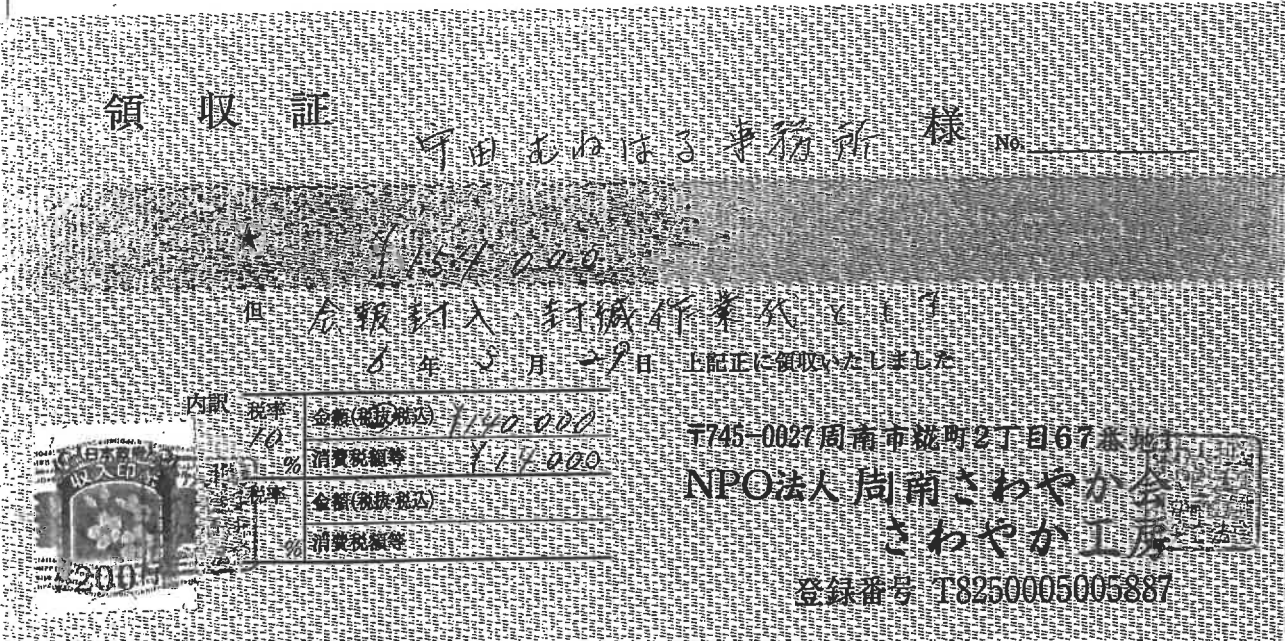 領収証
守田むねはる事務所 様 No.
★ ¥154,000
但 会報封入・封緘作業代として
6年5月29日 上記正に領収いたしました
内訳
税率 10% 金額(税抜・税込) ¥140,000
消費税額等 ¥14,000
税率 % 金額(税抜・税込)
消費税額等
日本政府
収入印紙
200
〒745-0027 周南市糀町2丁目67番地
NPO法人 周南さわやか会
さわやか工房
登録番号 T8250005005887